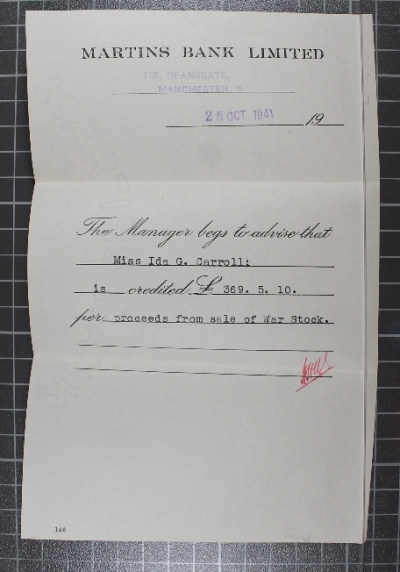 MARTINS BANK LIMITED
115, DEANSGATE,
MANCHESTER. 3
25 OCT 1941 19
The Manager begs to advise that
Miss Ida G. Carroll:
is credited £ 369. 5. 10.
per proceeds from sale of War Stock.